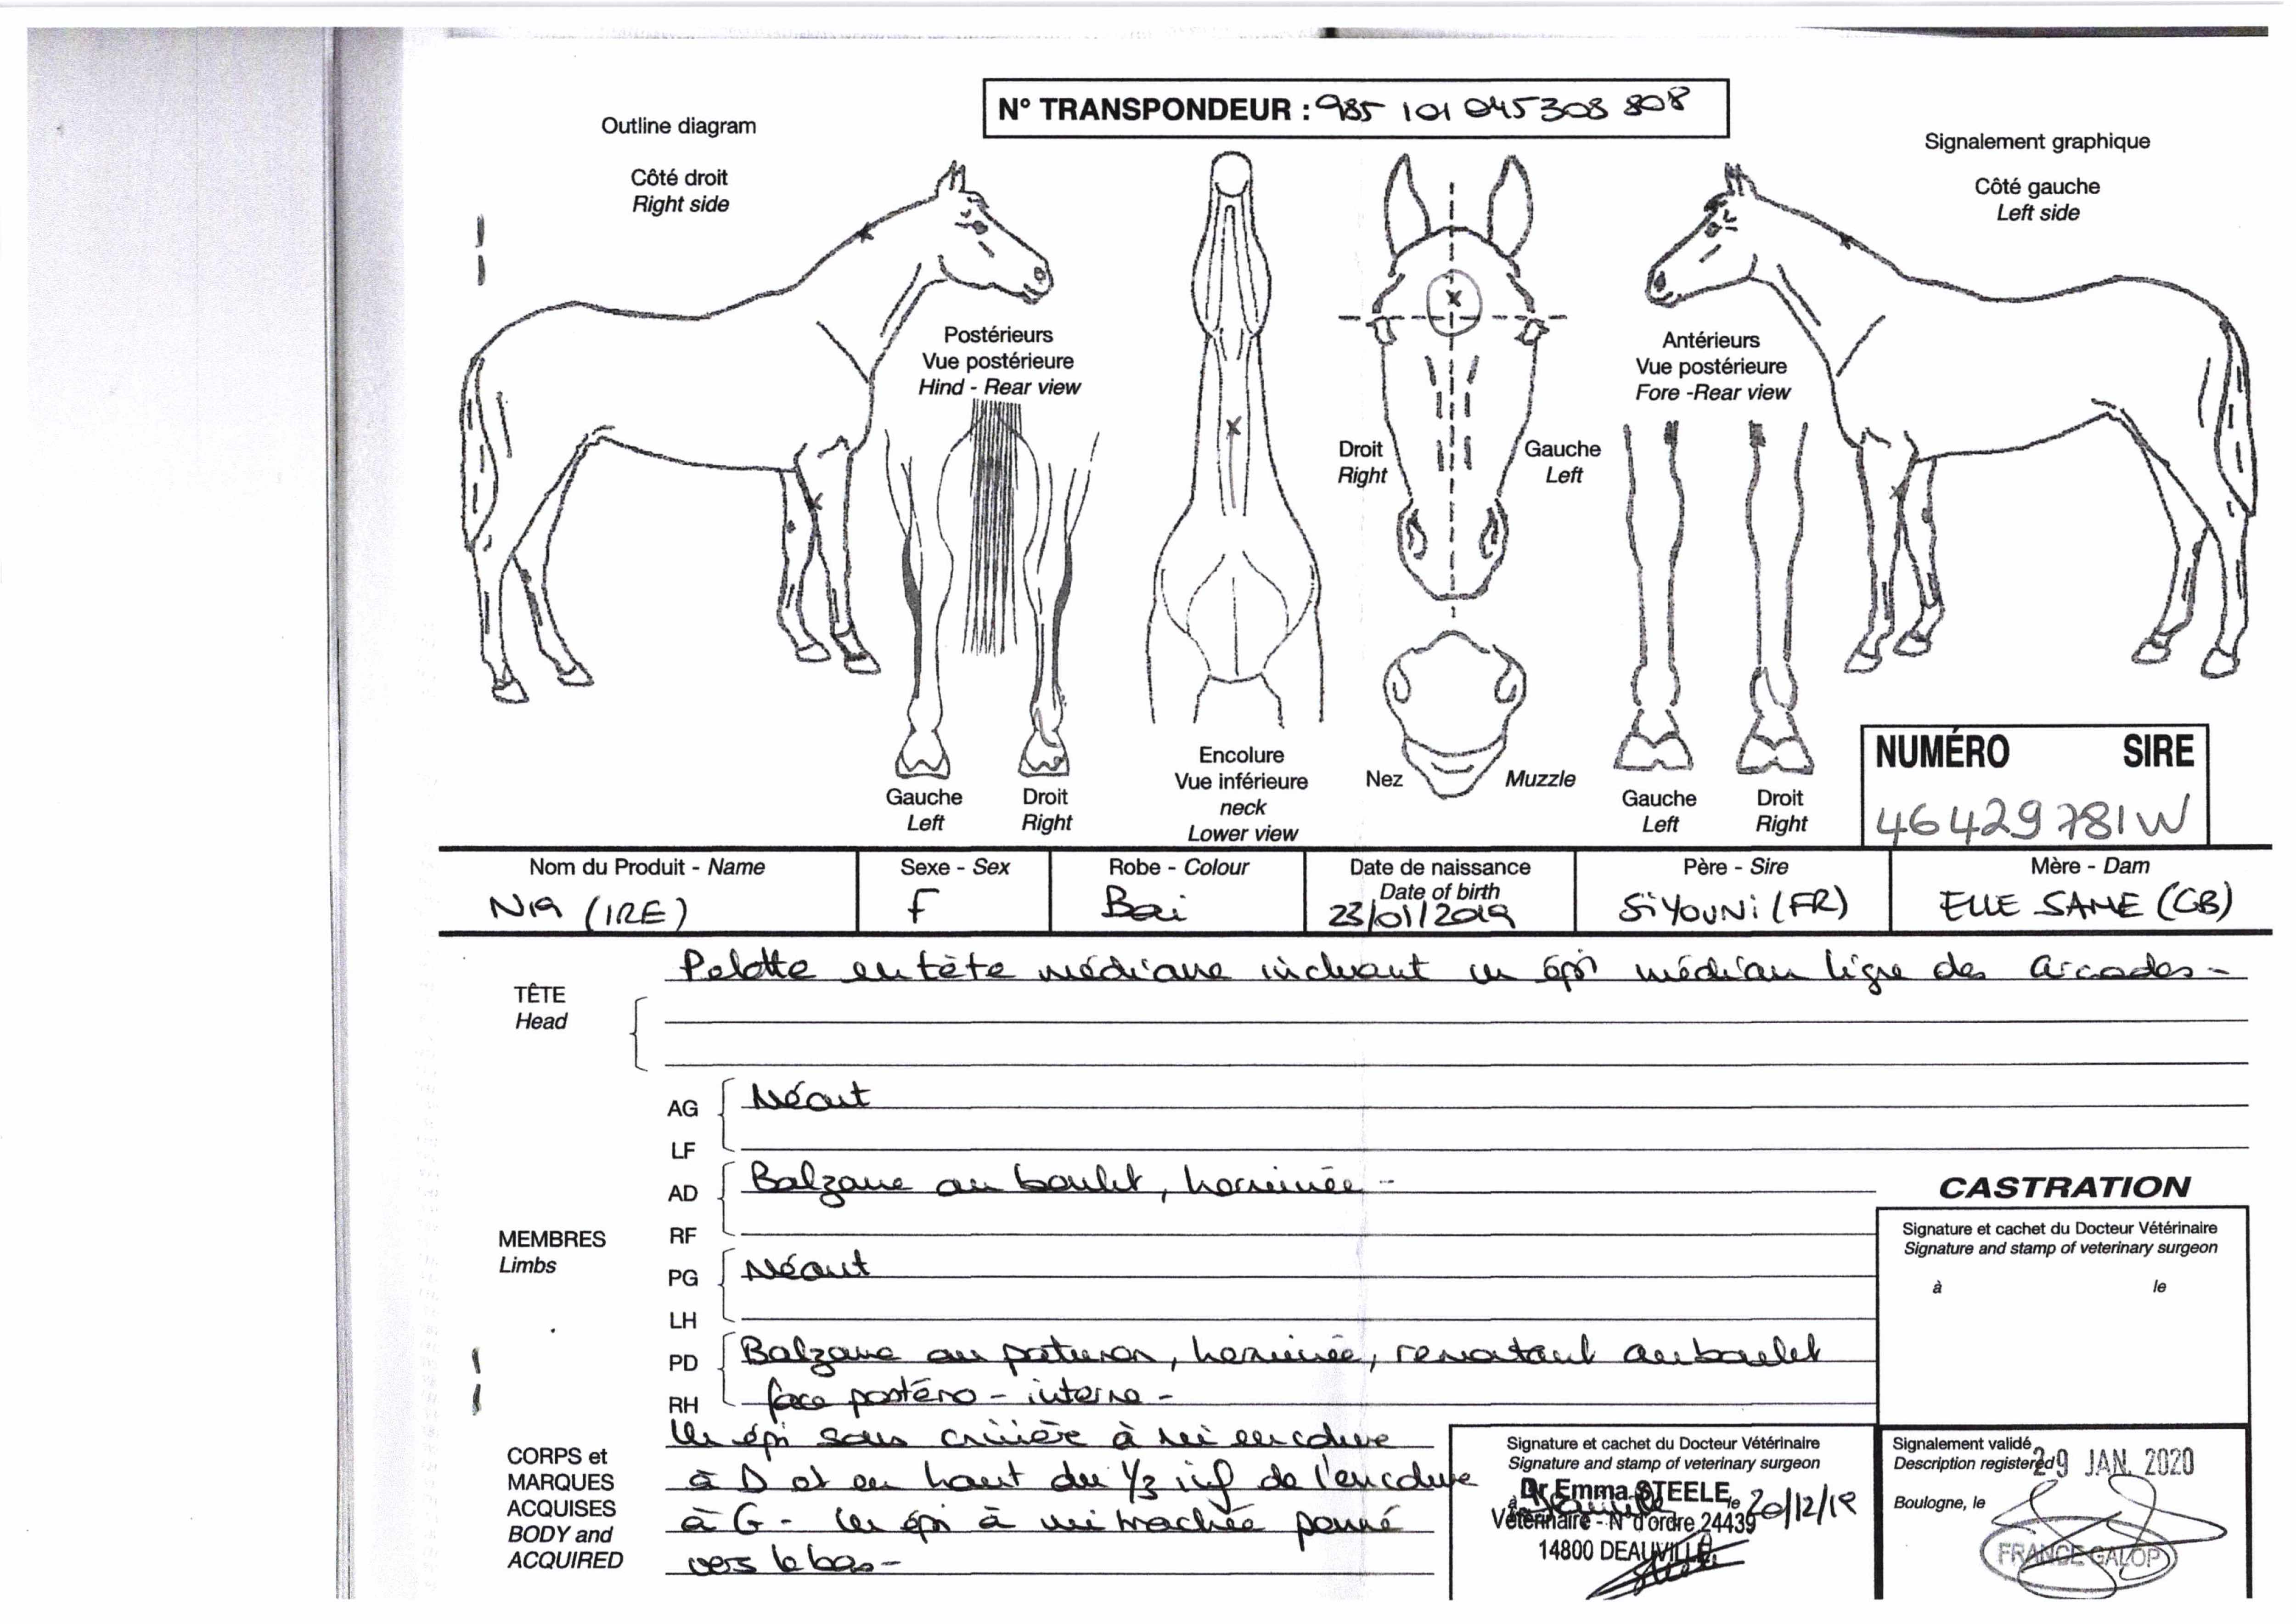 N° TRANSPONDEUR : 985 101 045 308 808
Outline diagram
Côté droit
Right side
Signalement graphique
Côté gauche
Left side
Postérieurs
Vue postérieure
Hind - Rear view
Antérieurs
Vue postérieure
Fore -Rear view
Droit
Right
Gauche
Left
Gauche
Left
Droit
Right
Encolure
Vue inférieure
neck
Lower view
Nez Muzzle
Gauche
Left
Droit
Right
NUMÉRO SIRE
46429781W
Nom du Produit - Name
NIA (IRE)
Sexe - Sex
F
Robe - Colour
Bai
Date de naissance
Date of birth
23/01/2019
Père - Sire
SIYOUNI (FR)
Mère - Dam
ELLE SAME (GB)
TÊTE
Head
Pelotte en tête médiane incluant un épi médian ligne des arcades -
MEMBRES
Limbs
AG
LF
Néant
AD
RF
Balzane au boulet, herminée -
PG
LH
Néant
PD
RH
Balzane au paturon, herminée, remontant au boulet
face postéro - interne -
CORPS et
MARQUES
ACQUISES
BODY and
ACQUIRED
Un épi sous crinière à mi encolure
à D et en haut du 1/3 inf de l'encolure
à G - Un épi à mi trachée penné
vers le bas -
CASTRATION
Signature et cachet du Docteur Vétérinaire
Signature and stamp of veterinary surgeon
à le
Signature et cachet du Docteur Vétérinaire
Signature and stamp of veterinary surgeon
Dr Emma STEELE
à Deauville le 20/12/19
Vétérinaire - N° d'ordre 24439
14800 DEAUVILLE
Signalement validé
Description registered
29 JAN. 2020
Boulogne, le
FRANCE GALOP